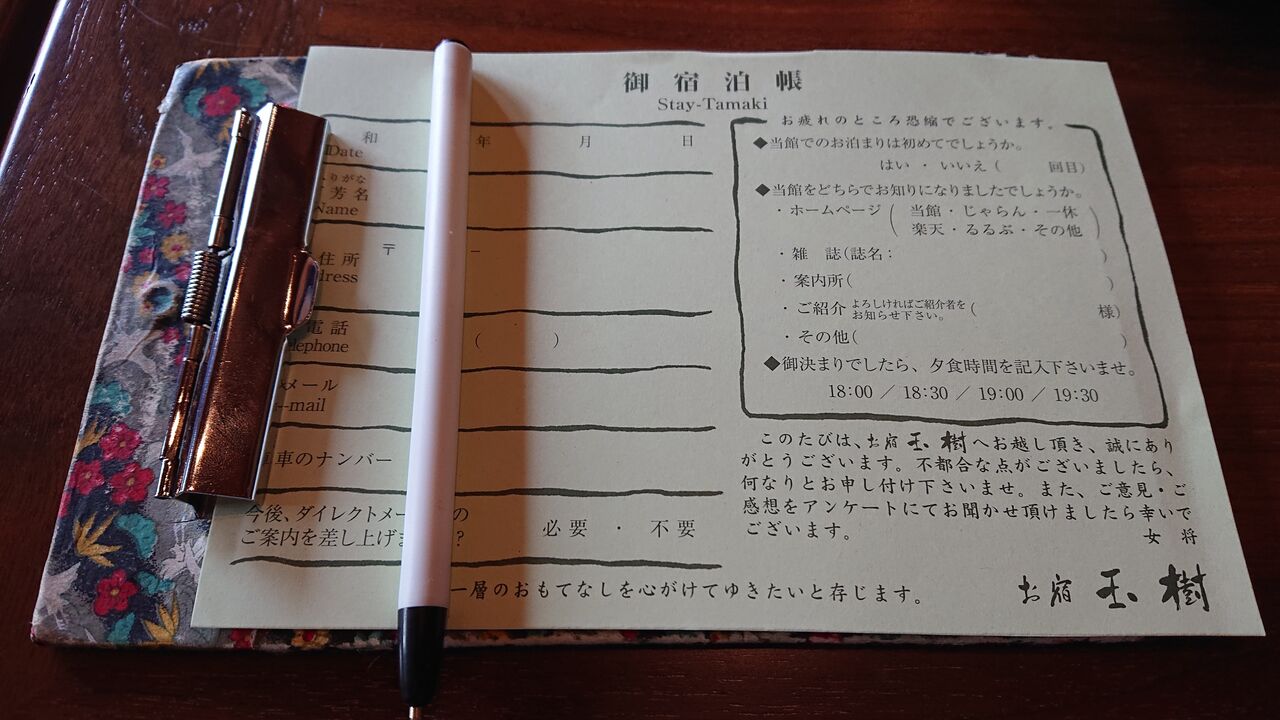 御宿泊帳
Stay-Tamaki
和 年 月 日
Date
りがな
芳名
Name
住所 〒 －
dress
電話 ( )
ephone
メール
-mail
車のナンバー
今後、ダイレクトメー の
ご案内を差し上げ ? 必要 ・ 不要
お疲れのところ恐縮でございます。
◆当館でのお泊まりは初めてでしょうか。
はい ・ いいえ ( 回目)
◆当館をどちらでお知りになりましたでしょうか。
・ホームページ ( 当館・じゃらん・一休
楽天・るるぶ・その他 )
・雑 誌(誌名： )
・案内所( )
・ご紹介 よろしければご紹介者を
お知らせ下さい。 ( 様)
・その他( )
◆御決まりでしたら、夕食時間を記入下さいませ。
18:00 ／ 18:30 ／ 19:00 ／ 19:30
このたびは、お宿 玉 樹へお越し頂き、誠にあり
がとうございます。不都合な点がございましたら、
何なりとお申し付け下さいませ。また、ご意見・ご
感想をアンケートにてお聞かせ頂けましたら幸いで
ございます。
女 将
一層のおもてなしを心がけてゆきたいと存じます。
お宿 玉 樹